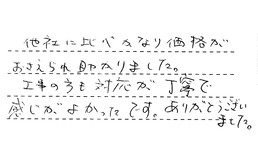 他社に比べかなり価格が
おさえられ助かりました。
工事の方も対応が丁寧で
感じがよかったです。ありがとうござい
ました。